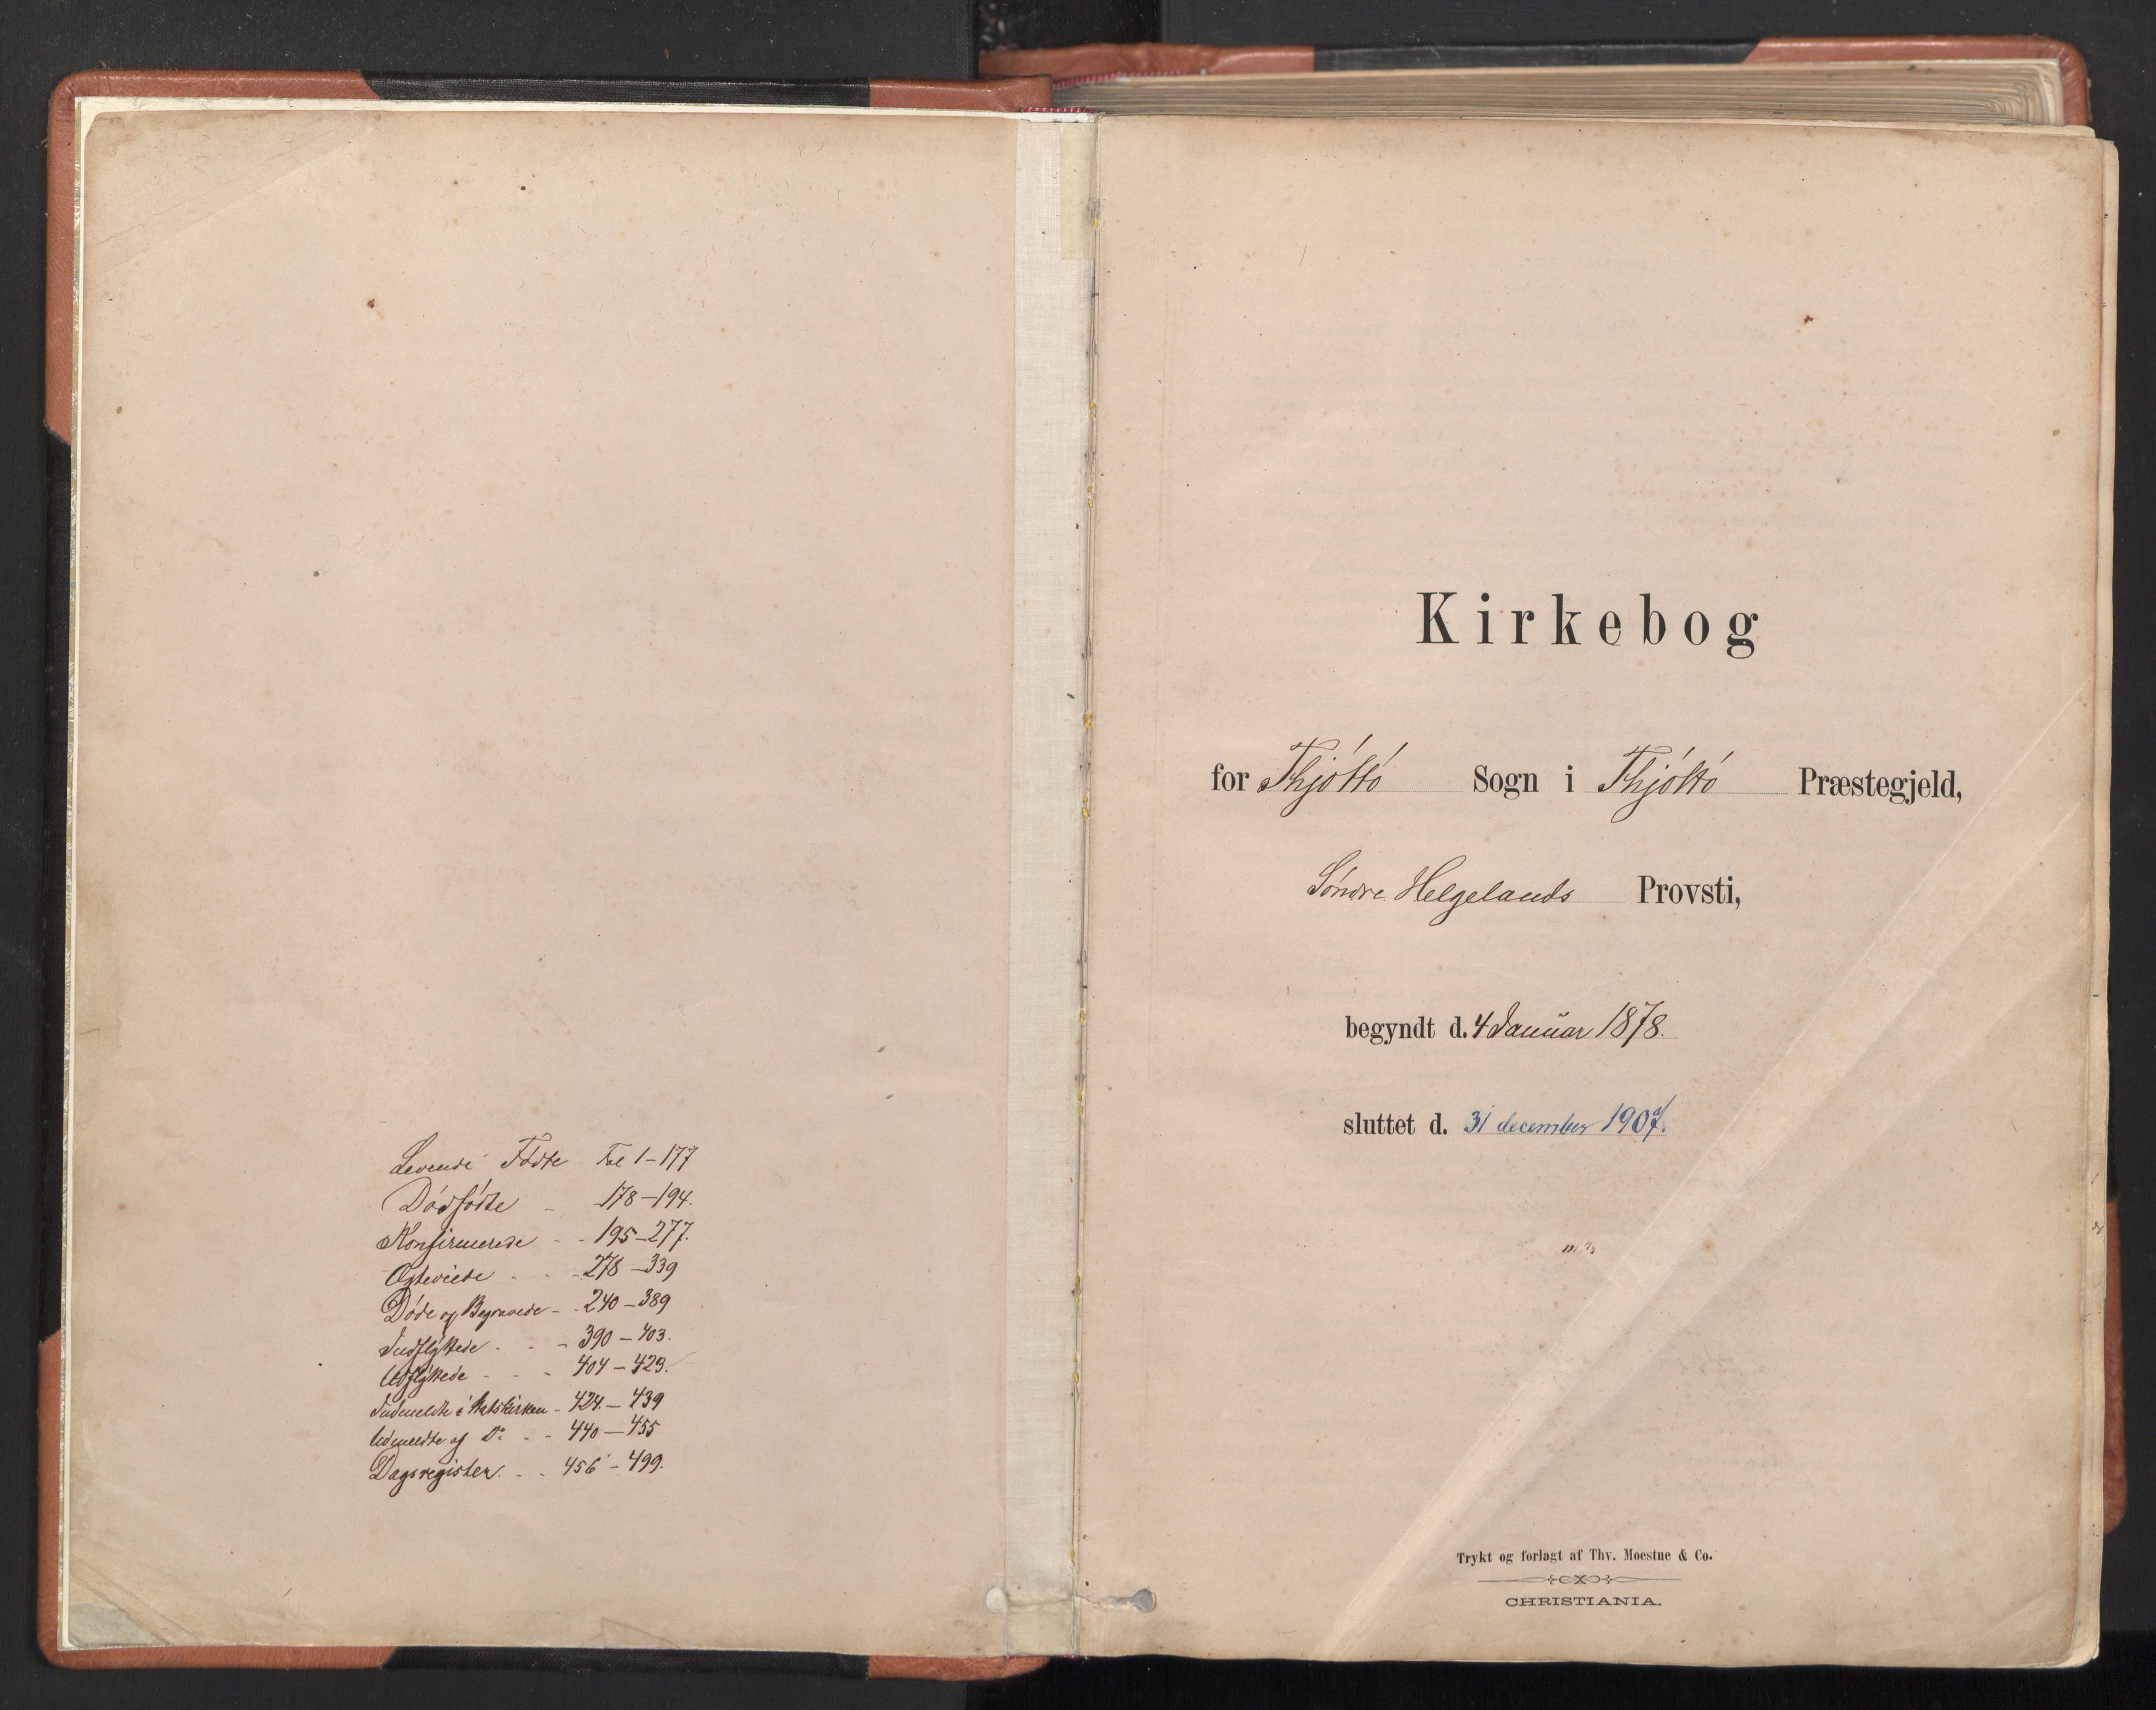 Levende Fødte Fol 1-177
Dødfødte - 178-194.
Konfirmerede - - 195-277.
Ægteviede - - - 278-339
Døde og Begravede - - 240-389
Indflyttede - - - 390-403.
Udflyttede - - - 404-423.
Indmeldte i Statskirken - 424.-439
Udmeldte af Do - - 440-455
Dagsregister. - - 456-499.
Kirkebog
for Thjóttó Sogn i Thjóttó Præstegjeld,
Søndre Helgelands Provsti,
begyndt d. 4 Januar 1878.
sluttet d. 31 december 1907.
Trykt og forlagt af Thv. Moestue & Co.
CHRISTIANIA.